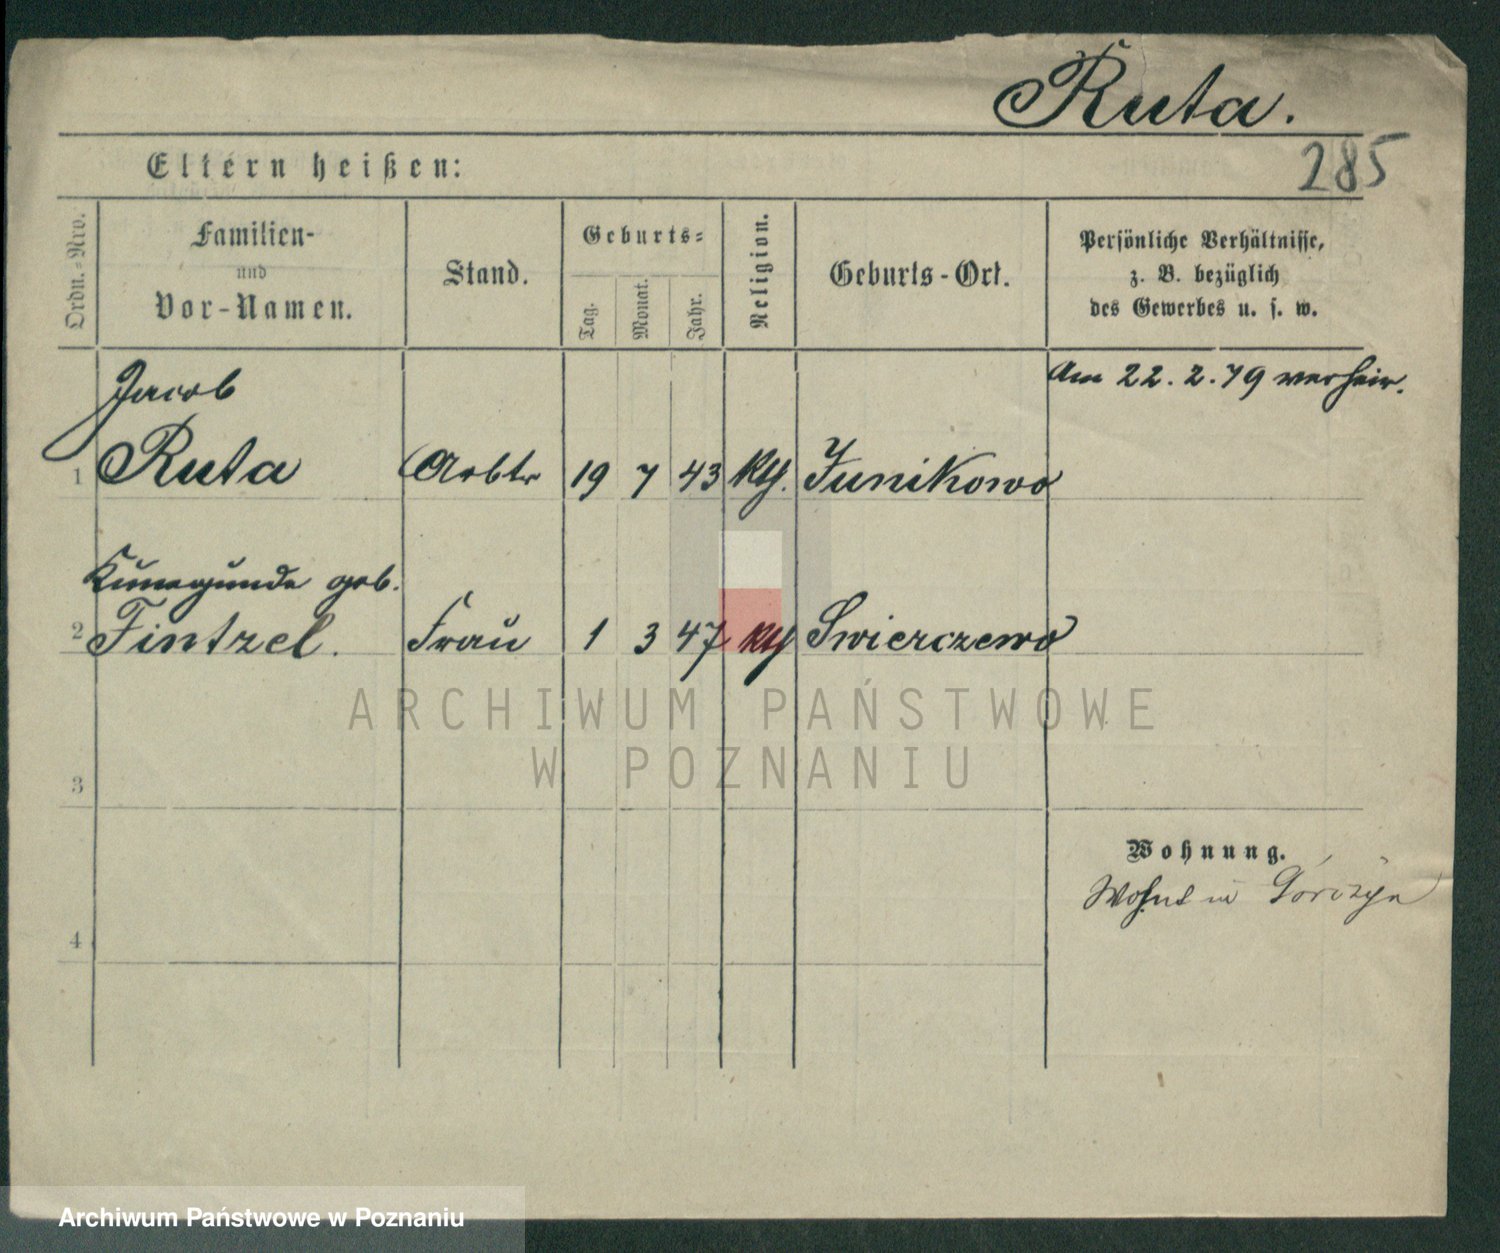 Ruta.
285
Eltern heißen:
Ordn.-Nro.
Familien-
und
Vor-Namen.
Stand.
Geburts-
Tag.
Monat.
Jahr.
Religion.
Geburts-Ort.
Persönliche Verhältnisse,
z. B. bezüglich
des Gewerbes u. s. w.
Jacob
Am 22.2.79 verheir.
1 Ruta Arbtr 19 7 43 Kth. Junikowo
Kunegunde geb.
2 Fintzel. Frau 1 3 47 Kth Swierczewo
ARCHIWUM PAŃSTWOWE
W POZNANIU
3
Wohnung.
Wohnt in Górczyn
4
Archiwum Państwowe w Poznaniu